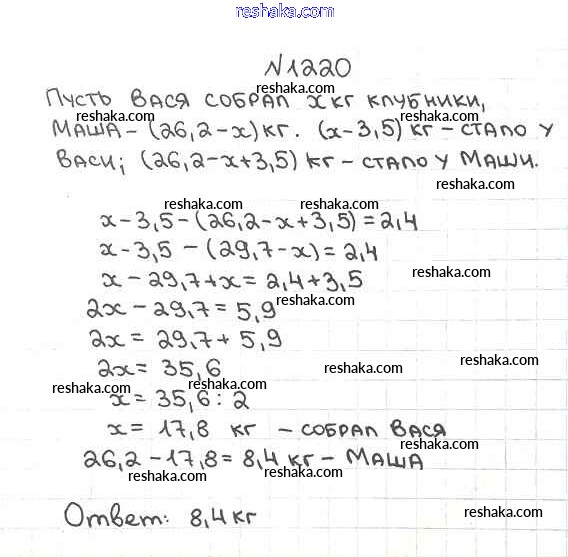 reshaka.com
№1220
reshaka.com
Пусть Вася собрал x кг клубники,
reshaka.com reshaka.com
Маша – (26,2 – x) кг. (x – 3,5) кг – стало у
Васи; (26,2 – x + 3,5) кг – стало у Маши.
reshaka.com
reshaka.com reshaka.com
x – 3,5 – (26,2 – x + 3,5) = 2,4
x – 3,5 – (29,7 – x) = 2,4
reshaka.com
x – 29,7 + x = 2,4 + 3,5
reshaka.com
2x – 29,7 = 5,9
reshaka.com
2x = 29,7 + 5,9
2x = 35,6
reshaka.com reshaka.com
reshaka.com reshaka.com reshaka.com
x = 35,6 : 2
x = 17,8 кг – собрал Вася
reshaka.com
26,2 – 17,8 = 8,4 кг – Маша
reshaka.com reshaka.com
Ответ: 8,4 кг
reshaka.com reshaka.com